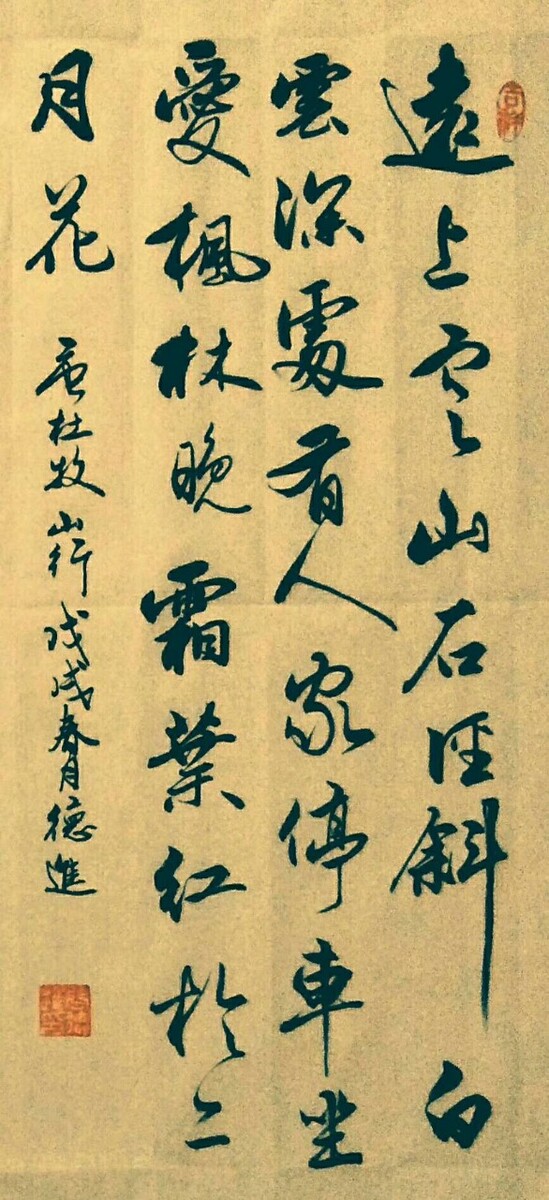 遠上寒山石径斜白
雲深處有人家停車坐
愛楓林晚霜葉紅於二
月花
唐杜牧山行戊戌春月德進